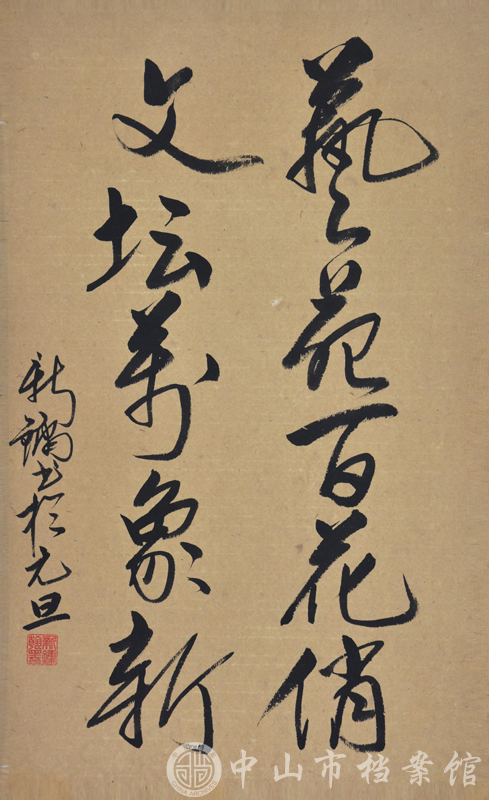 藝苑百花俏
文坛萬象新
新鏞书於元旦
中山市档案馆